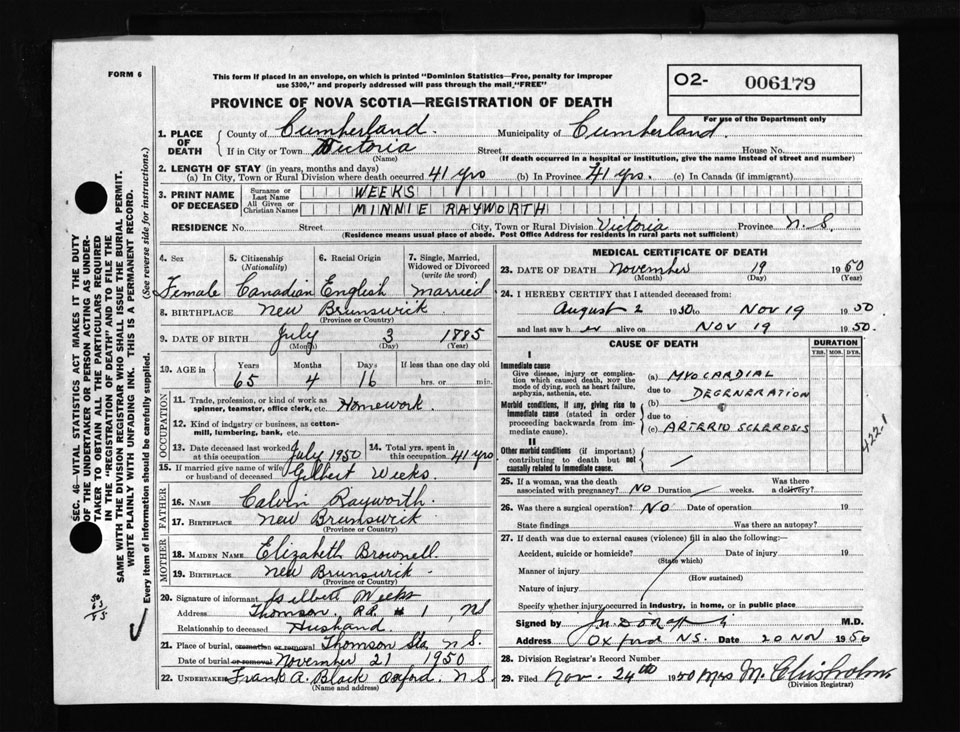 FORM 6
This form if placed in an envelope, on which is printed "Dominion Statistics—Free, penalty for improper
use $300," and properly addressed will pass through the mail, "FREE"
O2- 006179
For use of the Department only
PROVINCE OF NOVA SCOTIA—REGISTRATION OF DEATH
1. PLACE OF DEATH County of Cumberland. Municipality of Cumberland.
If in City or Town Victoria Street House No.
(Name) (If death occurred in a hospital or institution, give the name instead of street and number)
2. LENGTH OF STAY (in years, months and days)
(a) In City, Town or Rural Division where death occurred 41 yrs (b) In Province 41 yrs. (c) In Canada (if immigrant)
3. PRINT NAME OF DECEASED Surname or Last Name WEEKS
All Given or Christian Names MINNIE RAYWORTH
RESIDENCE No. Street City, Town or Rural Division Victoria Province N.S.
(Residence means usual place of abode. Post Office Address for residents in rural parts not sufficient)
4. Sex 5. Citizenship (Nationality) 6. Racial Origin 7. Single, Married, Widowed or Divorced (write the word)
Female Canadian English married
8. BIRTHPLACE New Brunswick
(Province or Country)
9. DATE OF BIRTH July 3 1885
(Month) (Day) (Year)
10. AGE in Years Months Days If less than one day old
65 4 16 hrs. or min.
OCCUPATION
11. Trade, profession, or kind of work as
spinner, teamster, office clerk, etc. Homework.
12. Kind of industry or business, as cotton-
mill, lumbering, bank, etc.
13. Date deceased last worked at this occupation July 1950 14. Total yrs. spent in this occupation 41 yrs
15. If married give name of wife or husband of deceased Gilbert Weeks.
FATHER
16. NAME Calvin Rayworth.
17. BIRTHPLACE New Brunswick
(Province or Country)
MOTHER
18. MAIDEN NAME Elizabeth Brownell.
19. BIRTHPLACE New Brunswick.
(Province or Country)
20. Signature of informant Gilbert Weeks
Address Thomson, R.R. # 1, NS
Relationship to deceased Husband.
21. Place of burial, cremation or removal Thomson Sta N.S.
Date of burial or removal November 21 1950
22. UNDERTAKER Frank A. Black Oxford. N.S.
(Name and address)
MEDICAL CERTIFICATE OF DEATH
23. DATE OF DEATH November 19 1950
(Month) (Day)
24. I HEREBY CERTIFY that I attended deceased from:
August 2 1950 to Nov 19 1950
and last saw her alive on Nov 19 1950.
CAUSE OF DEATH DURATION
YRS. MOS. DYS.
I
Immediate cause
Give disease, injury or complica-
tion which caused death, NOT the
mode of dying, such as heart failure,
asphyxia, asthenia, etc.
(a) MYOCARDIAL
due to DEGENERATION
Morbid conditions, if any, giving rise to
immediate cause (stated in order
proceeding backwards from im-
mediate cause).
(b)
due to
(c) ARTERIO SCLEROSIS
422.1
II
Other morbid conditions (if important)
contributing to death but not
causally related to immediate cause.
25. If a woman, was the death
associated with pregnancy? NO Duration weeks. Was there a delivery?
26. Was there a surgical operation? NO Date of operation 19
State findings Was there an autopsy?
27. If death was due to external causes (violence) fill in also the following:
Accident, suicide or homicide? Date of injury 19
(State which)
Manner of injury
(How sustained)
Nature of injury
Specify whether injury occurred in industry, in home, or in public place
Signed by M.D.
Address Oxford N.S. Date 20 NOV 1950
28. Division Registrar's Record Number
29. Filed Nov. 24th 1950 Mrs M. Chisholm
(Division Registrar)
SEC. 46—VITAL STATISTICS ACT MAKES IT THE DUTY
OF THE UNDERTAKER OR PERSON ACTING AS UNDER-
TAKER TO OBTAIN ALL THE PARTICULARS REQUIRED
IN THE "REGISTRATION OF DEATH" AND TO FILE THE
SAME WITH THE DIVISION REGISTRAR WHO SHALL ISSUE THE BURIAL PERMIT.
WRITE PLAINLY WITH UNFADING INK. THIS IS A PERMANENT RECORD.
Every item of information should be carefully supplied. (See reverse side for instructions.)